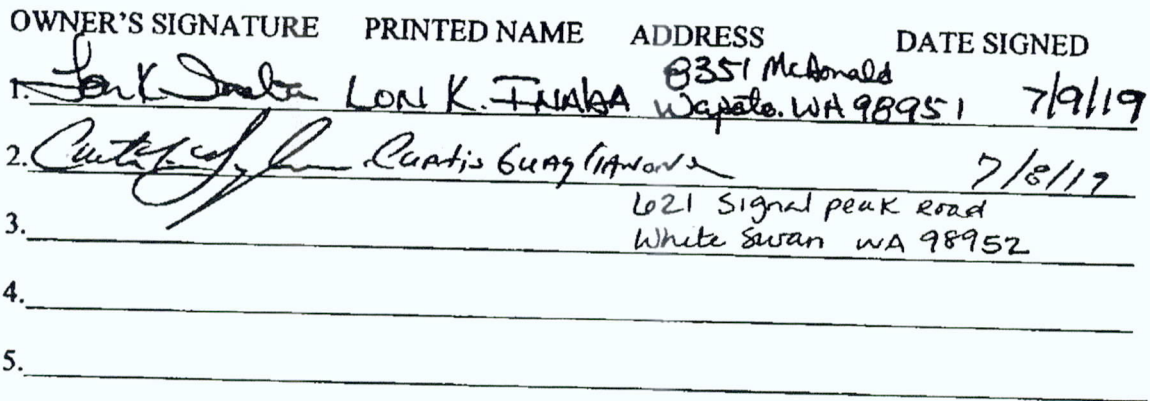 OWNER'S SIGNATURE PRINTED NAME ADDRESS DATE SIGNED
8351 McDonald
1. Lon K. INABA Wapato. WA 98951 7/9/19
2. Curtis Guaglianone 7/8/19
621 Signal peak Road
3. White Swan WA 98952
4.
5.